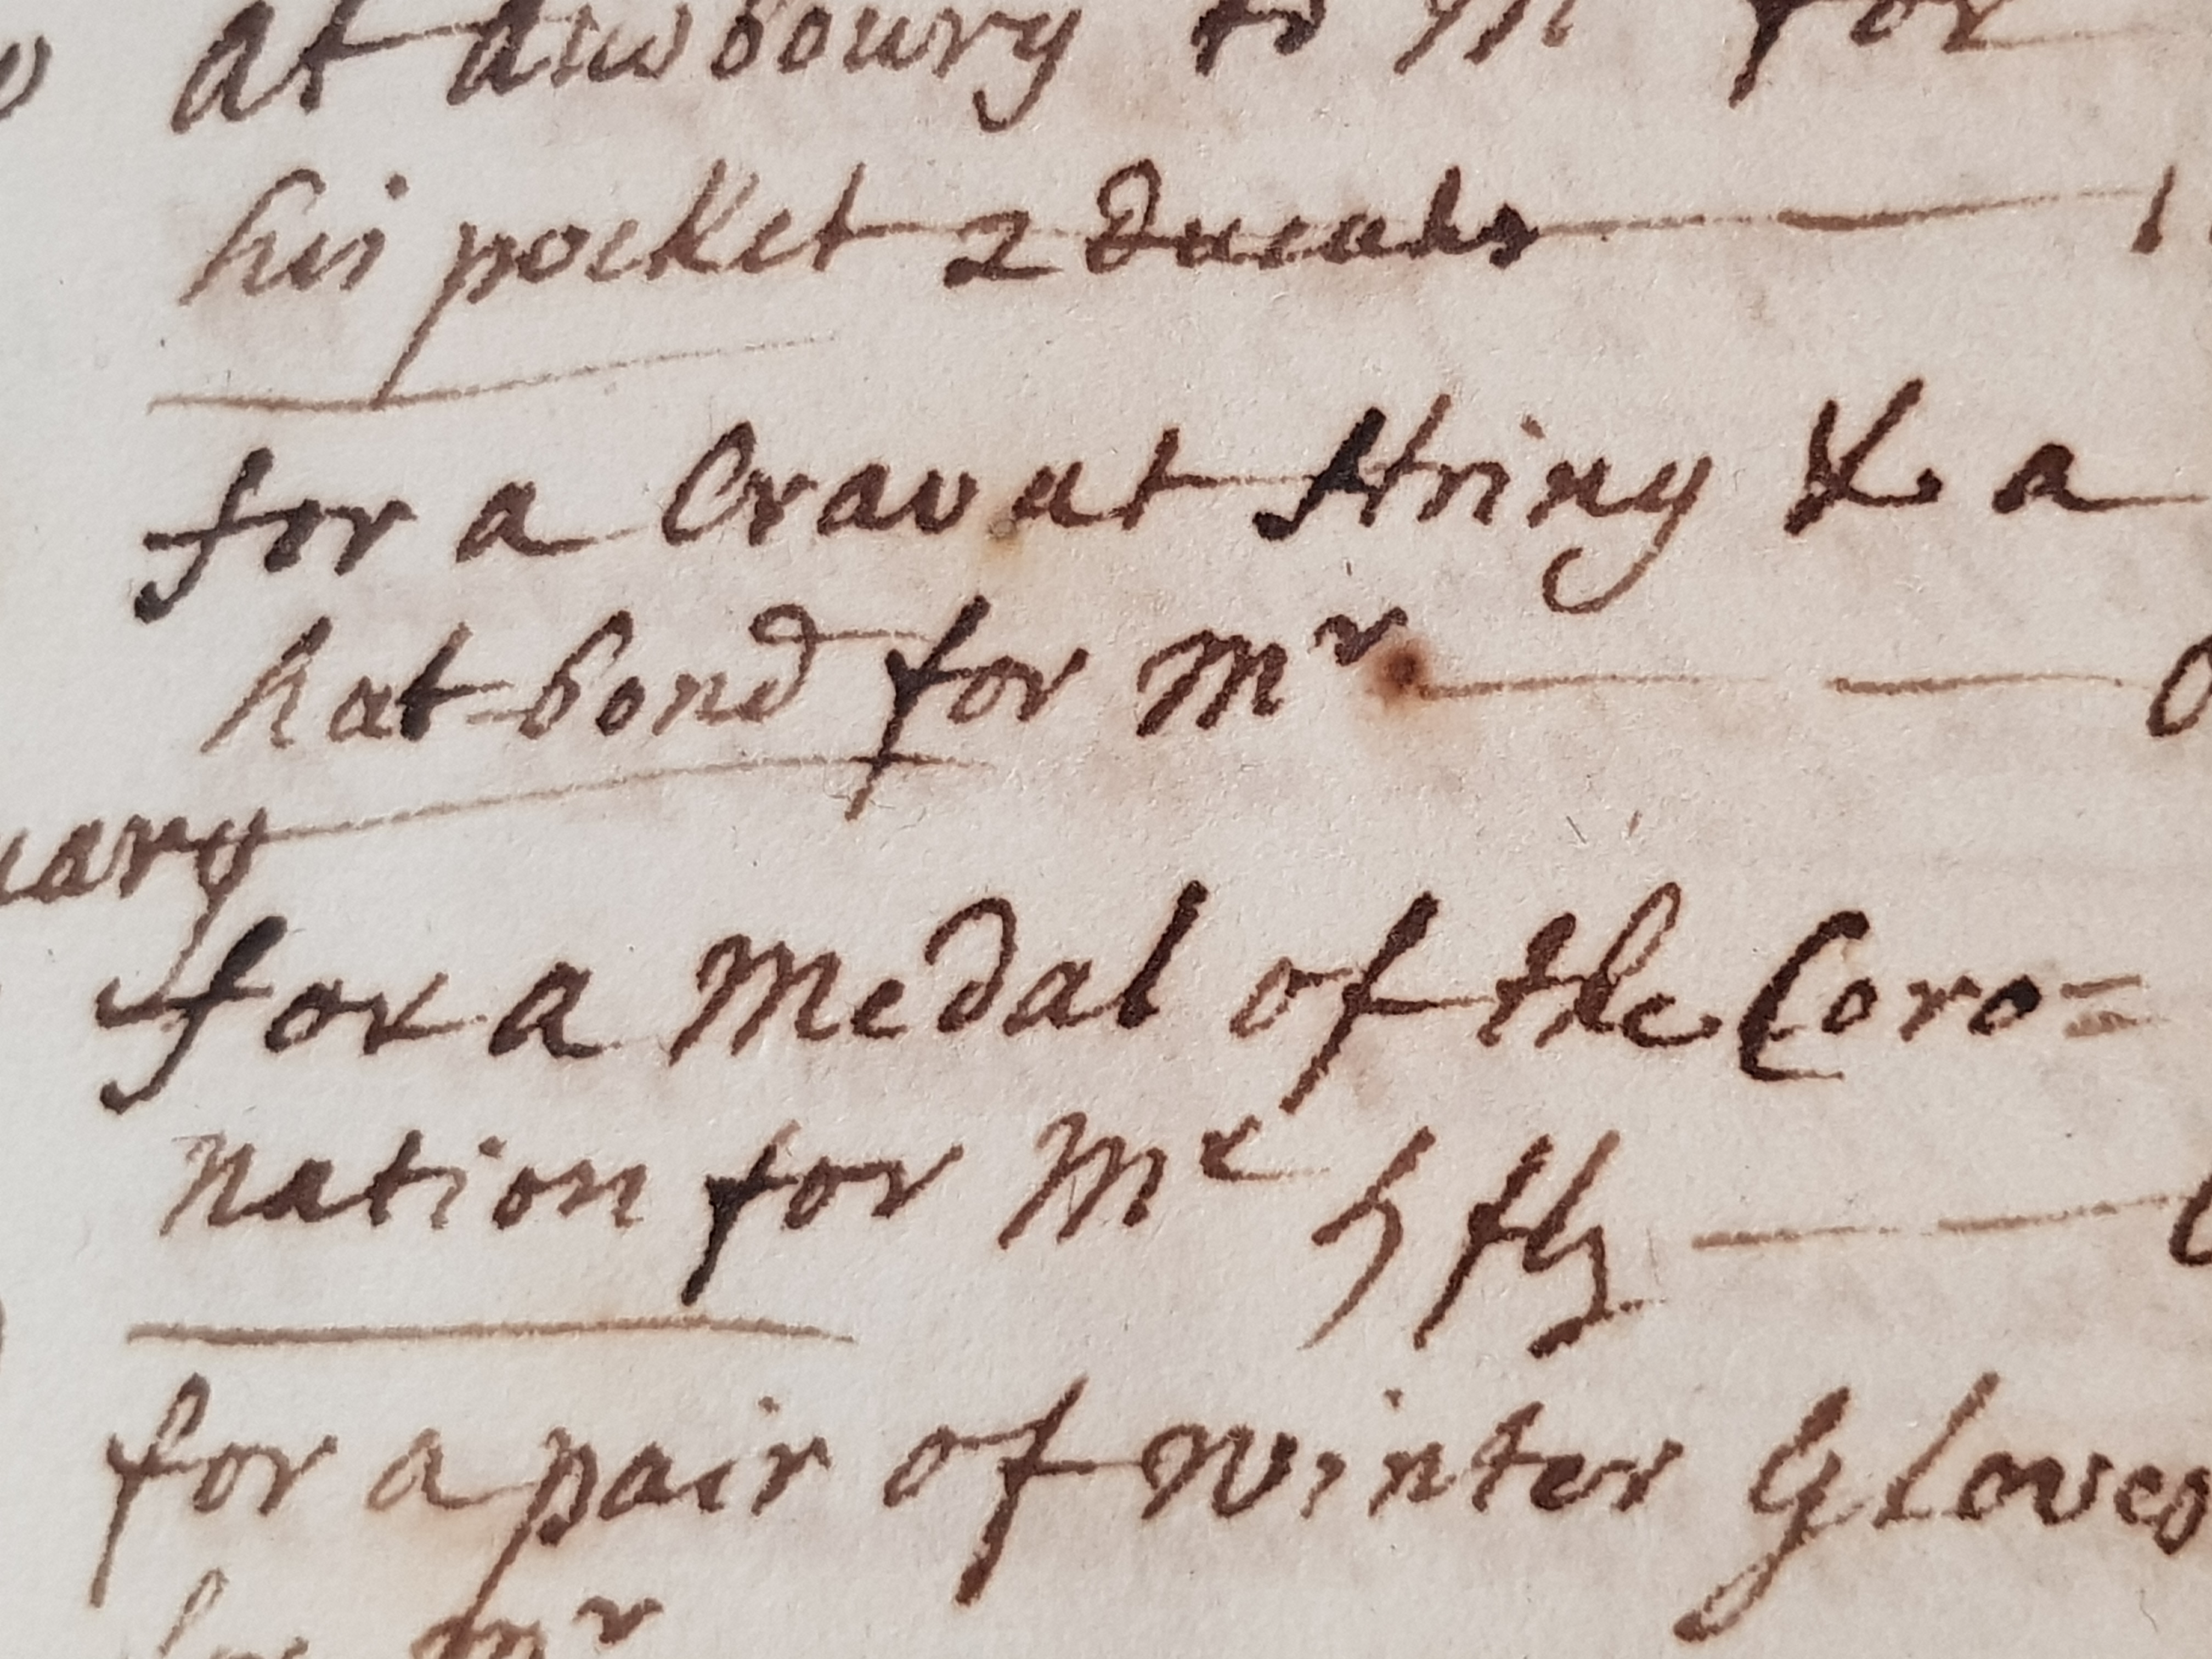 at dusboury to Mr for
his pocket 2 Ducats — 1
for a Cravat String & a
hat-bond for Mr — 0
uary
for a Medal of the Coro=
nation for Mr — 0
for a pair of winter Gloves
for Mr